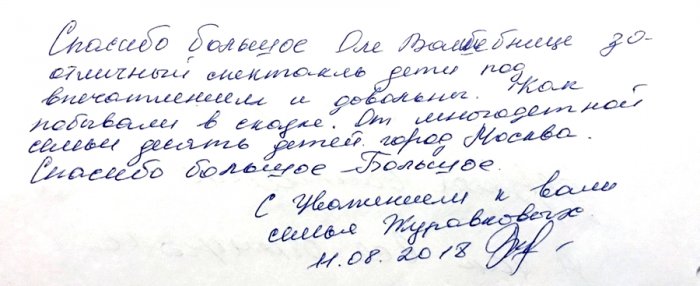 Спасибо большое Оле Волшебнице за
отличный спектакль дети под
впечатлением и довольны. Как
побывали в сказке. От многодетной
семьи десять детей город Москва.
Спасибо большое - Большое.
С Уважением к вам
семья Журавковых
11.08.2018